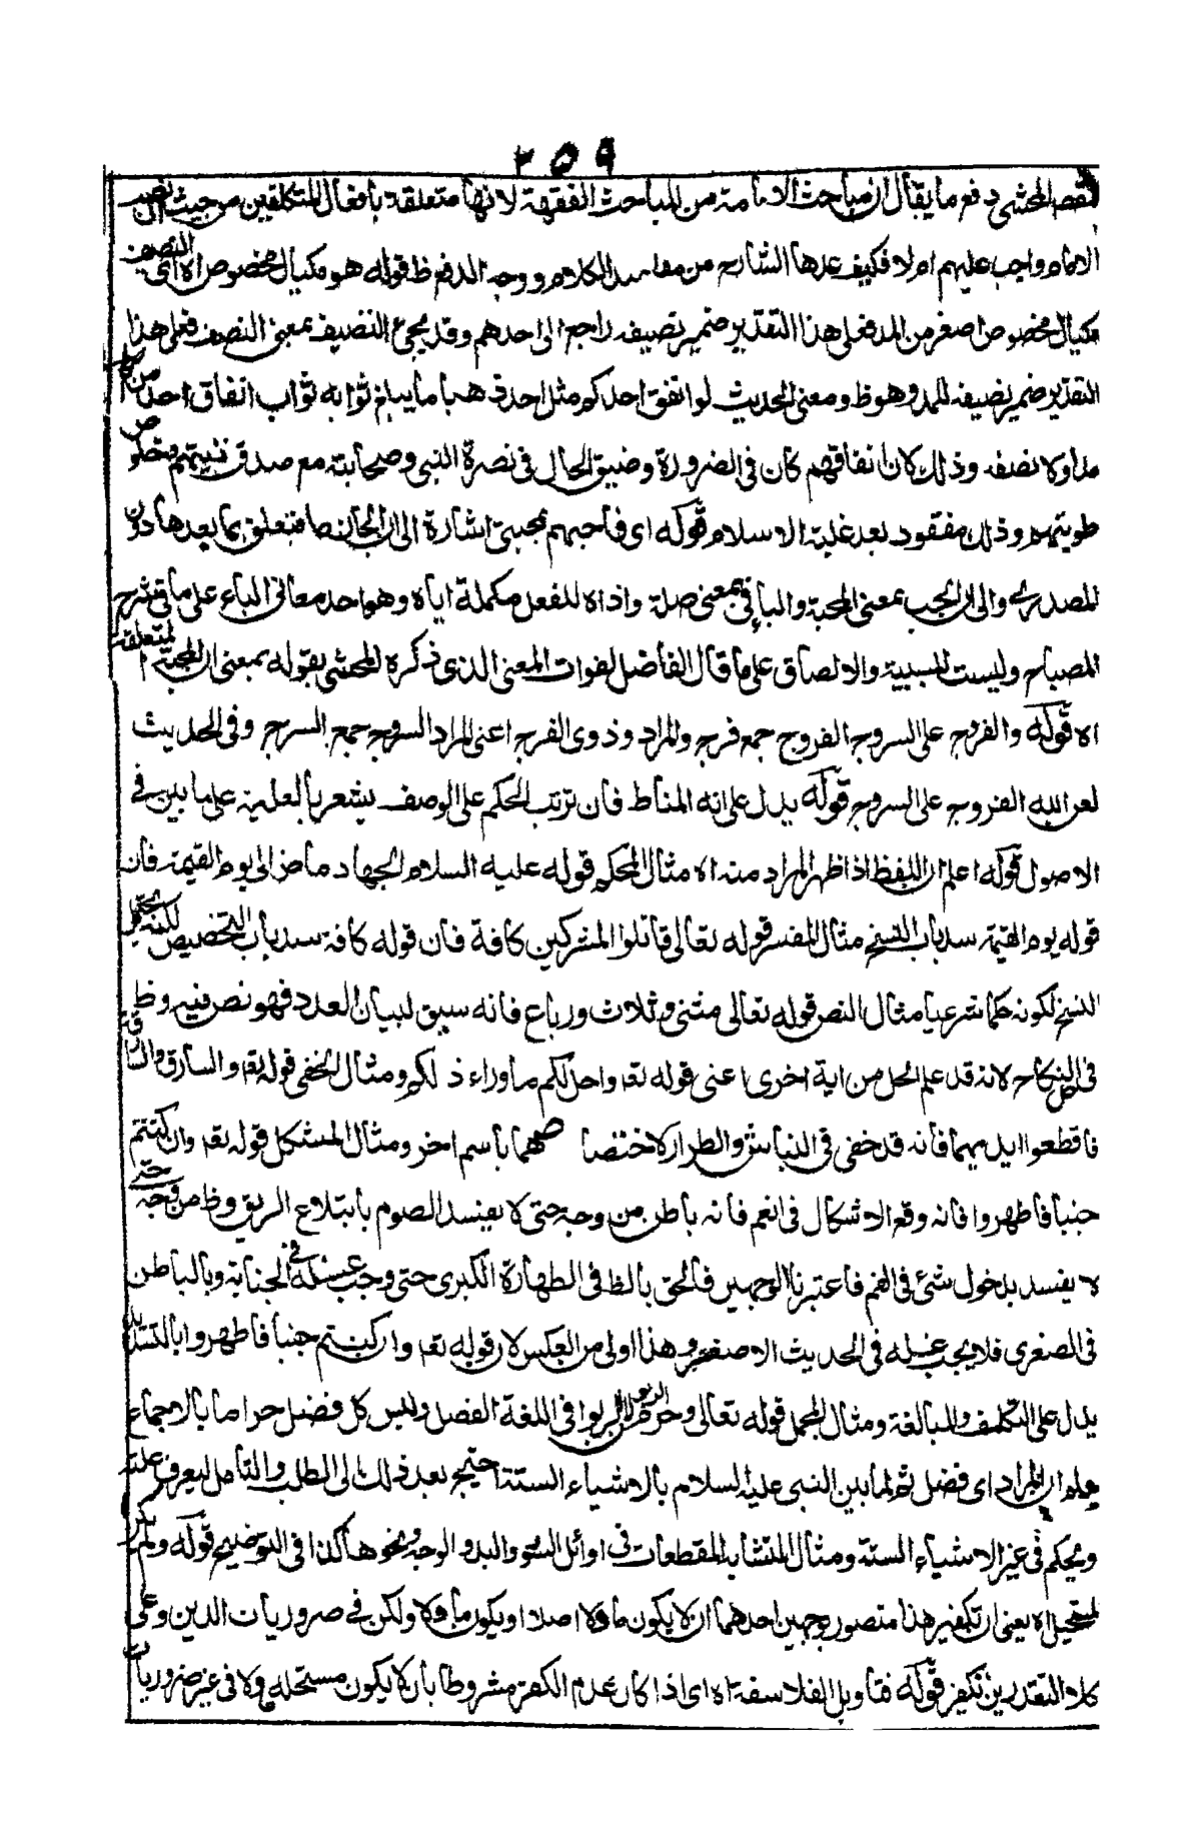 ٢٥٩
المحشى دفع ما يقال ان مباحث الامامة من المباحث الفقهية لانها متعلقة بافعال المتكلفين من حيث ان نصب
الامام واجب عليهم ام لا فكيف عدها الشارح من مقاصد الكلام ووجه الدفع ظ قوله هو مكيال مخصوص اه اى النصيف
مكيال مخصوص اصغر من المد فعلى هذا التقدير ضمير نصيفه راجع الى احدهم وقد يجئ النصيف بمعنى النصف فعلى هذا
التقدير ضمير نصيفه للمد وهو ظ ومعنى الحديث لو انفق احدكم مثل احد ذهبا ما يبلغ ثوابه ثواب انفاق احد من اصحابى
مدا ولا نصفه وذلك كان انفاقهم كان فى الضرورة وضيق الحال فى نصرة النبى وصحابته مع صدق نيتهم وخلوص
طويتهم وذلك مفقود بعد غلبة الاسلام قوله اى فاحبهم بمحبتى اشارة الى ان الجار متعلق بما بعدها دون
المصدر والى ان الحب بمعنى المحبة والباء فى بمعنى صلة واداة للفعل مكملة اياه وهو احد معانى الباء على ما فى شرح
المصباح وليست للسببية والالصاق على ما قال الفاضل لفوات المعنى الذى ذكره المحشى بقوله بمعنى ان المحبة المتعلقة
اه قوله والفروج على السروج الفروج جمع فرج والمراد ذوى الفرج اعنى المراد السروج جمع السرج وفى الحديث
لعن الله الفروج على السروج قوله يدل على انه المناط فان ترتب الحكم على الوصف يشعر بالعلية على ما بين فى
الاصول قوله اعلم ان اللفظ اذا ظهر المراد منه اه مثال المحكم قوله عليه السلام الجهاد ماض الى يوم القيمة فان
قوله يوم القيمة سد باب النسخ مثال المفسر قوله تعالى قاتلوا المشركين كافة فان قوله كافة سد باب التخصيص لكنه يحتمل
النسخ لكونه حكما شرعيا مثال النص قوله تعالى مثنى وثلاث ورباع فانه سيق لبيان العدد فهو نص فيه وظ
فى حل النكاح لانه قد علم الحل من اية اخرى اعنى قوله تعا واحل لكم ما وراء ذلكم ومثال الخفى قوله تعا والسارق والسارقة
فاقطعوا ايديهما فانه قد خفى فى النباش والطرار لاختصاصهما باسم اخر ومثال المشكل قوله تعا وان كنتم
جنبا فاطهروا فانه وقع الاشكال فى الفم فانه باطن من وجه حتى لا يفسد الصوم بابتلاع الريق وظ من وجه حتى
لا يفسد بدخول شئ فى الفم فاعتبرنا الوجهين فالحق بالظ فى الطهارة الكبرى حتى وجب غسله فى الجنابة وبالباطن
فى الصغرى فلا يجب غسله فى الحديث الاصغر وهذا اولى من العكس لان قوله تعا وان كنتم جنبا فاطهروا بالتشديد
يدل على التكلف والمبالغة ومثال المجمل قوله تعالى وحرم الربوا لان الربوا فى اللغة الفضل وليس كل فضل حراما بالاجماع
ولم ان المراد اى فضل ثم لما بين النبى عليه السلام بالاشياء الستة احتيج بعد ذلك الى الطلب والتامل ليعرف علته
ويحكم فى غير الاشياء الستة ومثال المتشابه المقطعات فى اوائل السور واليد والوجه ونحوها كذا فى التوضيح قوله ولم يكن
اه يعنى ان تكفير هذا متصور بوجهين احدهما ان لا يكون ماولا اصلا او يكون ماولا ولكن فى ضروريات الدين وعلى
كلا التقديرين تكفر قوله فتاويل الفلاسفة اه اى اذا كان عدم الكفر مشروطا بان لا يكون مستحله ماولا فى غير ضروريات